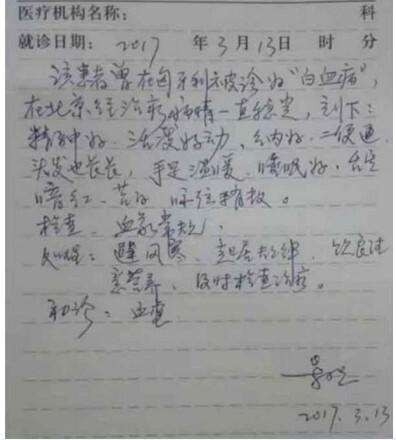 医疗机构名称: 科
就诊日期: 2017 年 3 月 13 日 时 分
该患者曾在匈牙利被诊为"白血病",
在北京经治疗病情一直稳定,刻下:
精神好、活泼好动、纳好、二便通
头发也长长,手足温暖、睡眠好,舌
暗红、苔白、脉弦稍数。
检查:血象常规。
处理:避风寒、起居规律、饮食
营养、及时检查治疗。
初诊:血虚
2017.3.13